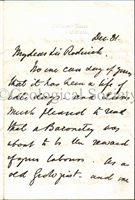 Dec 31.
My dear Sir Roderick.
No one can say of you
that it has been a life of
idle days. I am
much pleased to read
that a Baronetcy was
about to be the reward
of your labours. As a
old Geologist. and one